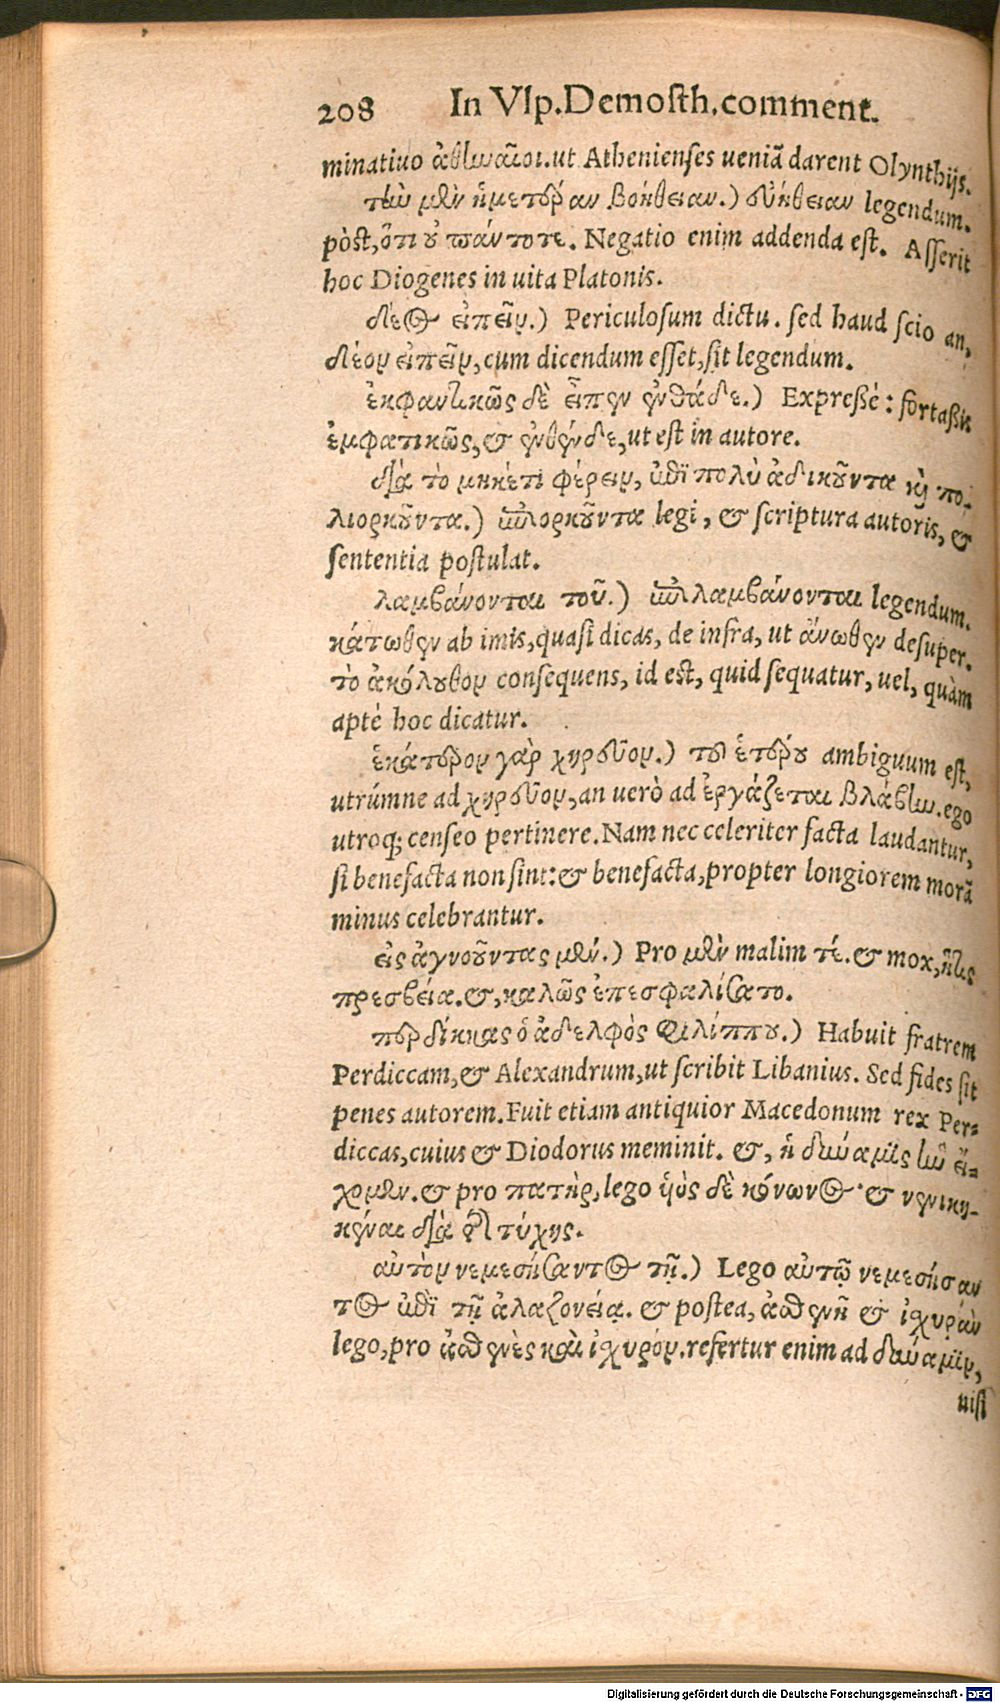 208 In Vlp.Demosth.comment.
minatiuo ἀθηναῖοι.ut Athenienses ueniã darent Olynthijs.
τὴν μὲν ἡμετέραν βοήθειαν.) συήθειαν legendum.
pòst,ὅτι οὐ πάντοτε. Negatio enim addenda est. Asserit
hoc Diogenes in uita Platonis.
δέος εἰπεῖν.) Periculosum dictu. sed haud scio an,
δέον εἰπεῖν, cum dicendum esset, sit legendum.
ἐκφαντικῶς δὲ εἶπεν ἐνθάδε.) Expressé: fortassis
ἐμφατικῶς, & ἐνθένδε, ut est in autore.
διὰ τὸ μηκέτι φέρειν, ἐπὶ πολὺ ἀδικοῦντα καὶ πο-
λιορκοῦντα.) ἐπιορκοῦντα legi, & scriptura autoris, &
sententia postulat.
λαμβάνονται τοῦ.) ἐπιλαμβάνονται legendum.
κάτωθεν ab imis, quasi dicas, de infra, ut ἄνωθεν desuper.
τὸ ἀκόλουθον consequens, id est, quid sequatur, uel, quàm
apté hoc dicatur.
ἑκάτερον γὰρ χεῖρον.) τοῦ ἑτέρου ambiguum est,
utrúmne ad χεῖρον, an uerò ad ἐργάζεται βλάβην. ego
utroq; censeo pertinere. Nam nec celeriter facta laudantur,
si benefacta non sint: & benefacta, propter longiorem morã
minus celebrantur.
εἰς ἀγνοοῦντας μέν.) Pro μὲν malim τέ. & mox, ἥτις
πρεσβεία. &, καλῶς ἐπεσφαλίσατο.
περδίκκας ὁ ἀδελφὸς Φιλίππου.) Habuit fratrem
Perdiccam, & Alexandrum, ut scribit Libanius. Sed fides sit
penes autorem. Fuit etiam antiquior Macedonum rex Per-
diccas, cuius & Diodorus meminit. &, ἡ δύναμις ἣν εἴ-
χομεν. & pro πατὴρ, lego υἱὸς δὲ κόνωνος· & νενικη-
κέναι διὰ τῆς τύχης.
αὐτὸν νεμεσήσαντος τῇ.) Lego αὐτῷ νεμεσήσαν
τος ἐπὶ τῇ ἀλαζονείᾳ. & postea, ἀσθενῆ & ἰσχυρὰν
lego, pro ἀσθενὲς καὶ ἰσχυρόν. refertur enim ad δύναμιν,
nisi
Digitalisierung gefördert durch die Deutsche Forschungsgemeinschaft - DFG